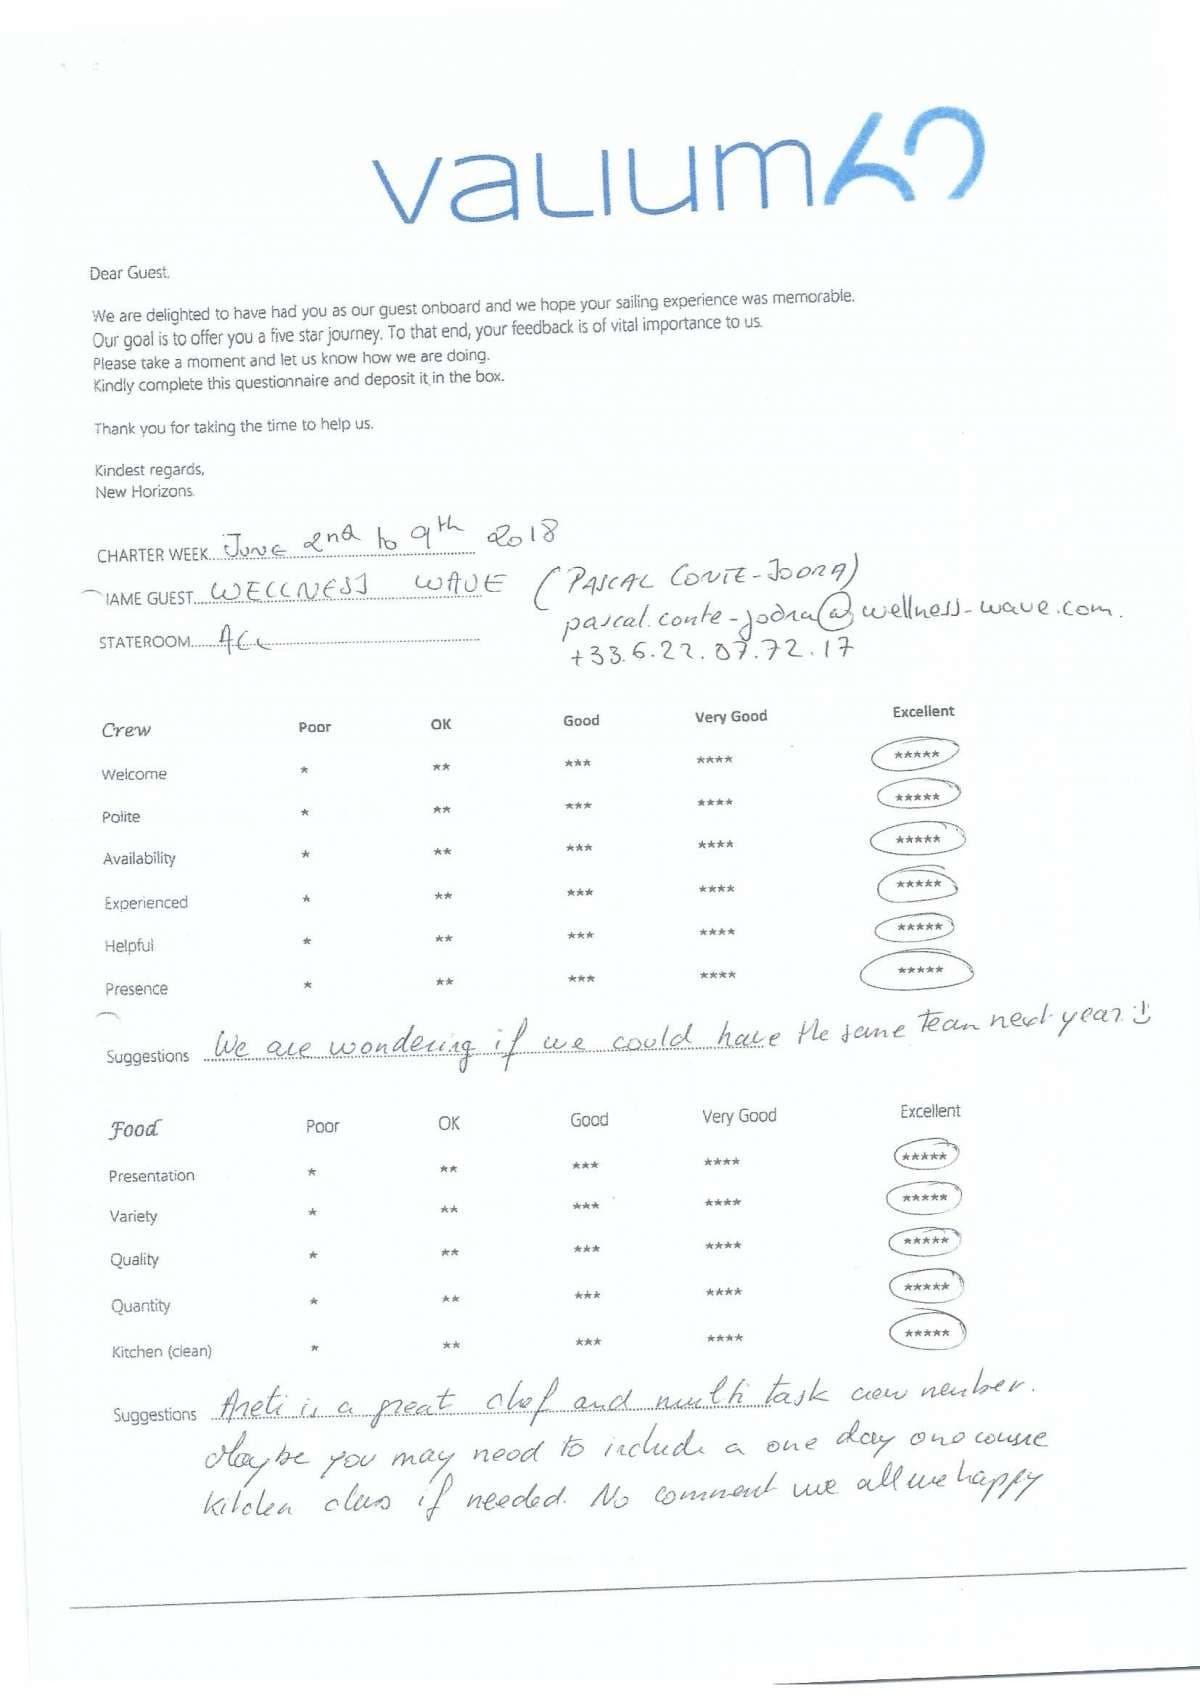 vaLium62
Dear Guest,
We are delighted to have had you as our guest onboard and we hope your sailing experience was memorable.
Our goal is to offer you a five star journey. To that end, your feedback is of vital importance to us.
Please take a moment and let us know how we are doing.
Kindly complete this questionnaire and deposit it in the box.
Thank you for taking the time to help us.
Kindest regards,
New Horizons.
CHARTER WEEK... June 2nd to 9th 2018
IAME GUEST... WELLNESS WAVE (PASCAL CONTE-JODRA)
pascal.conte-jodra@wellness-wave.com.
STATEROOM... ALL
+33.6.22.07.72.17
Crew Poor OK Good Very Good Excellent
Welcome * ** *** **** *****
Polite * ** *** **** *****
Availability * ** *** **** *****
Experienced * ** *** **** *****
Helpful * ** *** **** *****
Presence * ** *** **** *****
Suggestions We are wondering if we could have the same team next year :)
Food Poor OK Good Very Good Excellent
Presentation * ** *** **** *****
Variety * ** *** **** *****
Quality * ** *** **** *****
Quantity * ** *** **** *****
Kitchen (clean) * ** *** **** *****
Suggestions Areti is a great chef and multi task crew member.
Maybe you may need to include a one day one course
kitchen class if needed. No comment we all we happy